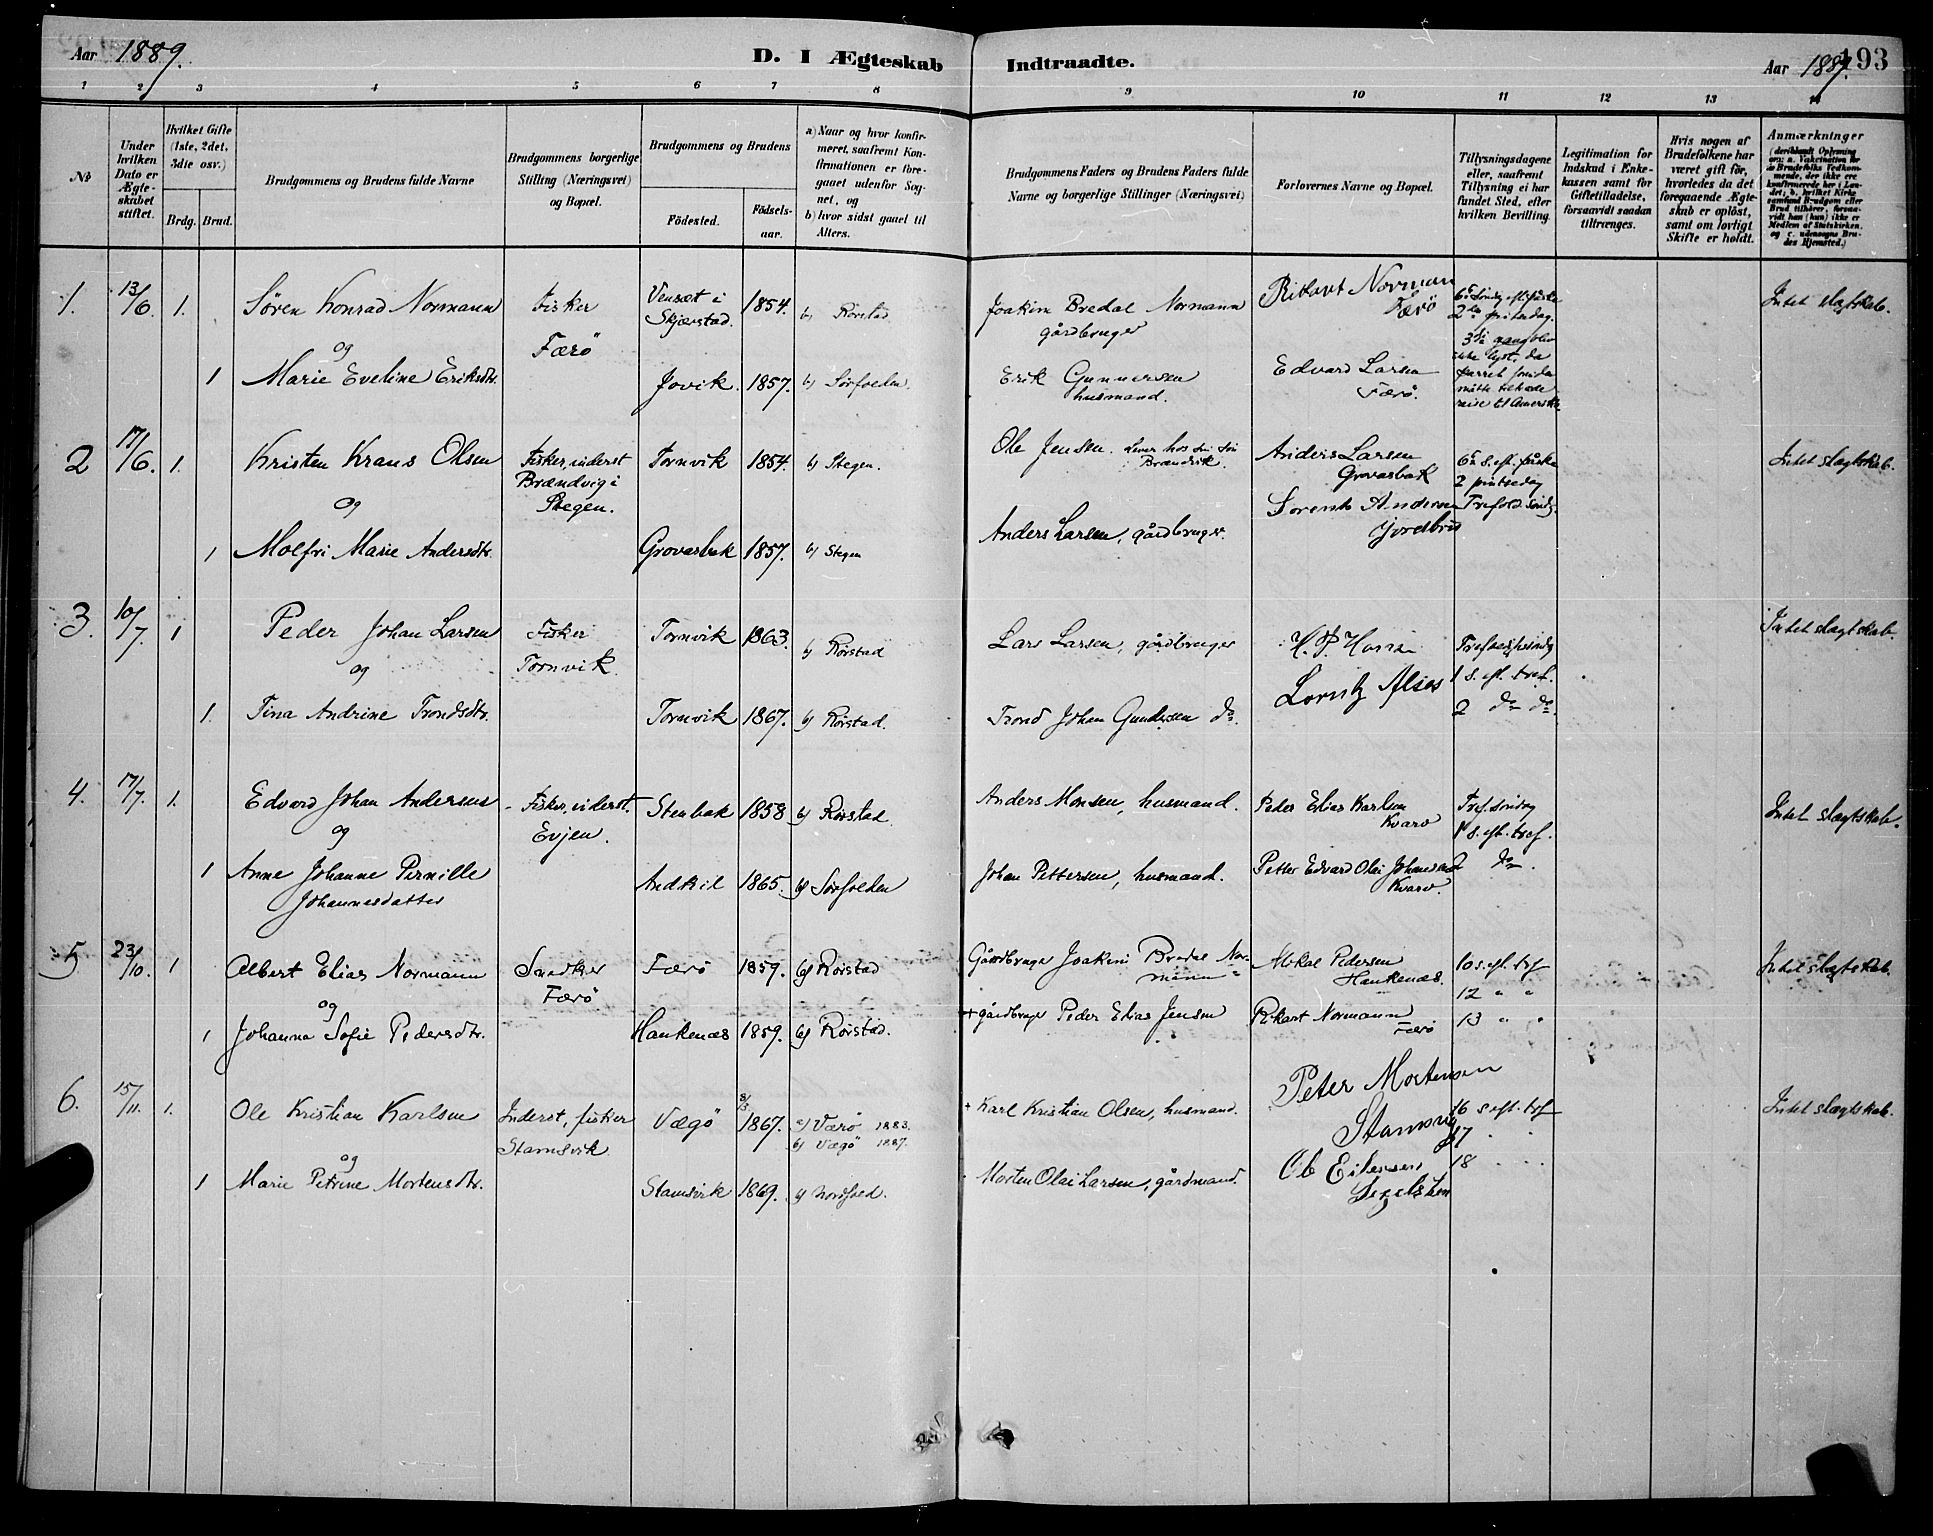 Aar 1889.
D. I Ægteskab
Indtraadte.
Aar 1889.
193
1 2 3 4 5 6 7 8 9 10 11 12 13 14
No
Under hvilken Dato er Ægteskabet stiftet.
Hvilket Gifte (1ste, 2det, 3die osv.)
Brdg. Brud.
Brudgommens og Brudens fulde Navne
Brudgommens borgerlige Stilling (Næringsvei) og Bopæl.
Brudgommens og Brudens
Födested.
Födselsaar.
a) Naar og hvor konfirmeret, saafremt Konfirmationen er foregaaet udenfor Sognet, og
b) hvor sidst gaaet til Alters.
Brudgommens Faders og Brudens Faders fulde Navne og borgerlige Stillinger (Næringsvei)
Forlovernes Navne og Bopæl.
Tillysningsdagene eller, saafremt Tillysning ei har fundet Sted, efter hvilken Bevilling.
Legitimation for Indskud i Enkekassen samt for Giftetilladelse, forsaavidt saadan tiltrænges.
Hvis nogen af Brudefolkene har været gift før, hvorledes da det foregaaende Ægteskab er oplöst, samt om lovligt Skifte er holdt.
Anmærkninger
1. 13/6. 1. Søren Konrad Normann Fisker Vensæt i Skjærstad. 1854. b) Rörstad Joakim Bredal Normann gårdbruger Rikart Normann Færö Intet slægtskab.
og
Færö
1 Marie Eveline Eriksdtr. Jovik. 1857. b) Sörfolden. Erik Gunnersen husmand. Edvard Larsen Færö.
2 17/6. 1. Kristen Krans Olsen Fisker, inderst Brændvig i Stegen. Tornvik 1854. b) Stegen. Ole Jensen. Anders Larsen Grovasbak Intet slægtskab.
og
2 pintsedag
1 Molfri Marie Andersdtr. Grovasbak 1857. b) Stegen Anders Larsen, gårdbruger.
3. 10/7. 1 Peder Johan Larsen Fisker Tornvik. Tornvik 1863. b) Rörstad Lars Larsen, gårdbruger Intet slægtskab.
og
1 s. eft. tref.
1. Tina Andrine Trondsdtr. Tornvik 1867. b) Rörstad. Trond Johan Gundersen do. 2 do do
4. 17/7. 1. Edvard Johan Andersen Fisker, inderst. Evjen. Stenbak 1858 b) Rörstad. Anders Monsen, husmand. Peder Elias Karlsen Kvarv Tref. söndag Intet slægtskab.
og
1 s. eft. tref.
1 Anne Johanne Pernille Johannesdatter Andkil 1865. b) Sörfolden Johan Pettersen, husmand. Petter Edvard Olai Kvarv. 2 do.
5 23/10. 1 Albert Elias Normann Færö Færö 1859. b) Rörstad Gårdbruger Joakim Bredal Normann Mikal Pedersen Hankenæs. 10 s. eft. tref Intet slægtskab.
og
12 " "
1 Johanna Sofie Pedersdtr. Hankenæs 1859. b) Rörstad. + gårdbruger Peder Elias Jensen Rikart Normann Færö 13 " "
6. 15/11. 1. Ole Kristian Karlsen Inderst, fisker Stamsvik Vægö 8/3 1867. a) Værö 1883. b) Vægö 1887. + Karl Kristian Olsen, husmand. Peter Mortensen 16 s. eft. tref Intet slægtskab.
og
17 " "
1 Marie Petrine Mortensdtr. Stamsvik 1869. b) Nordfold. Morten Olai Larsen, gårdmand. 18 " "